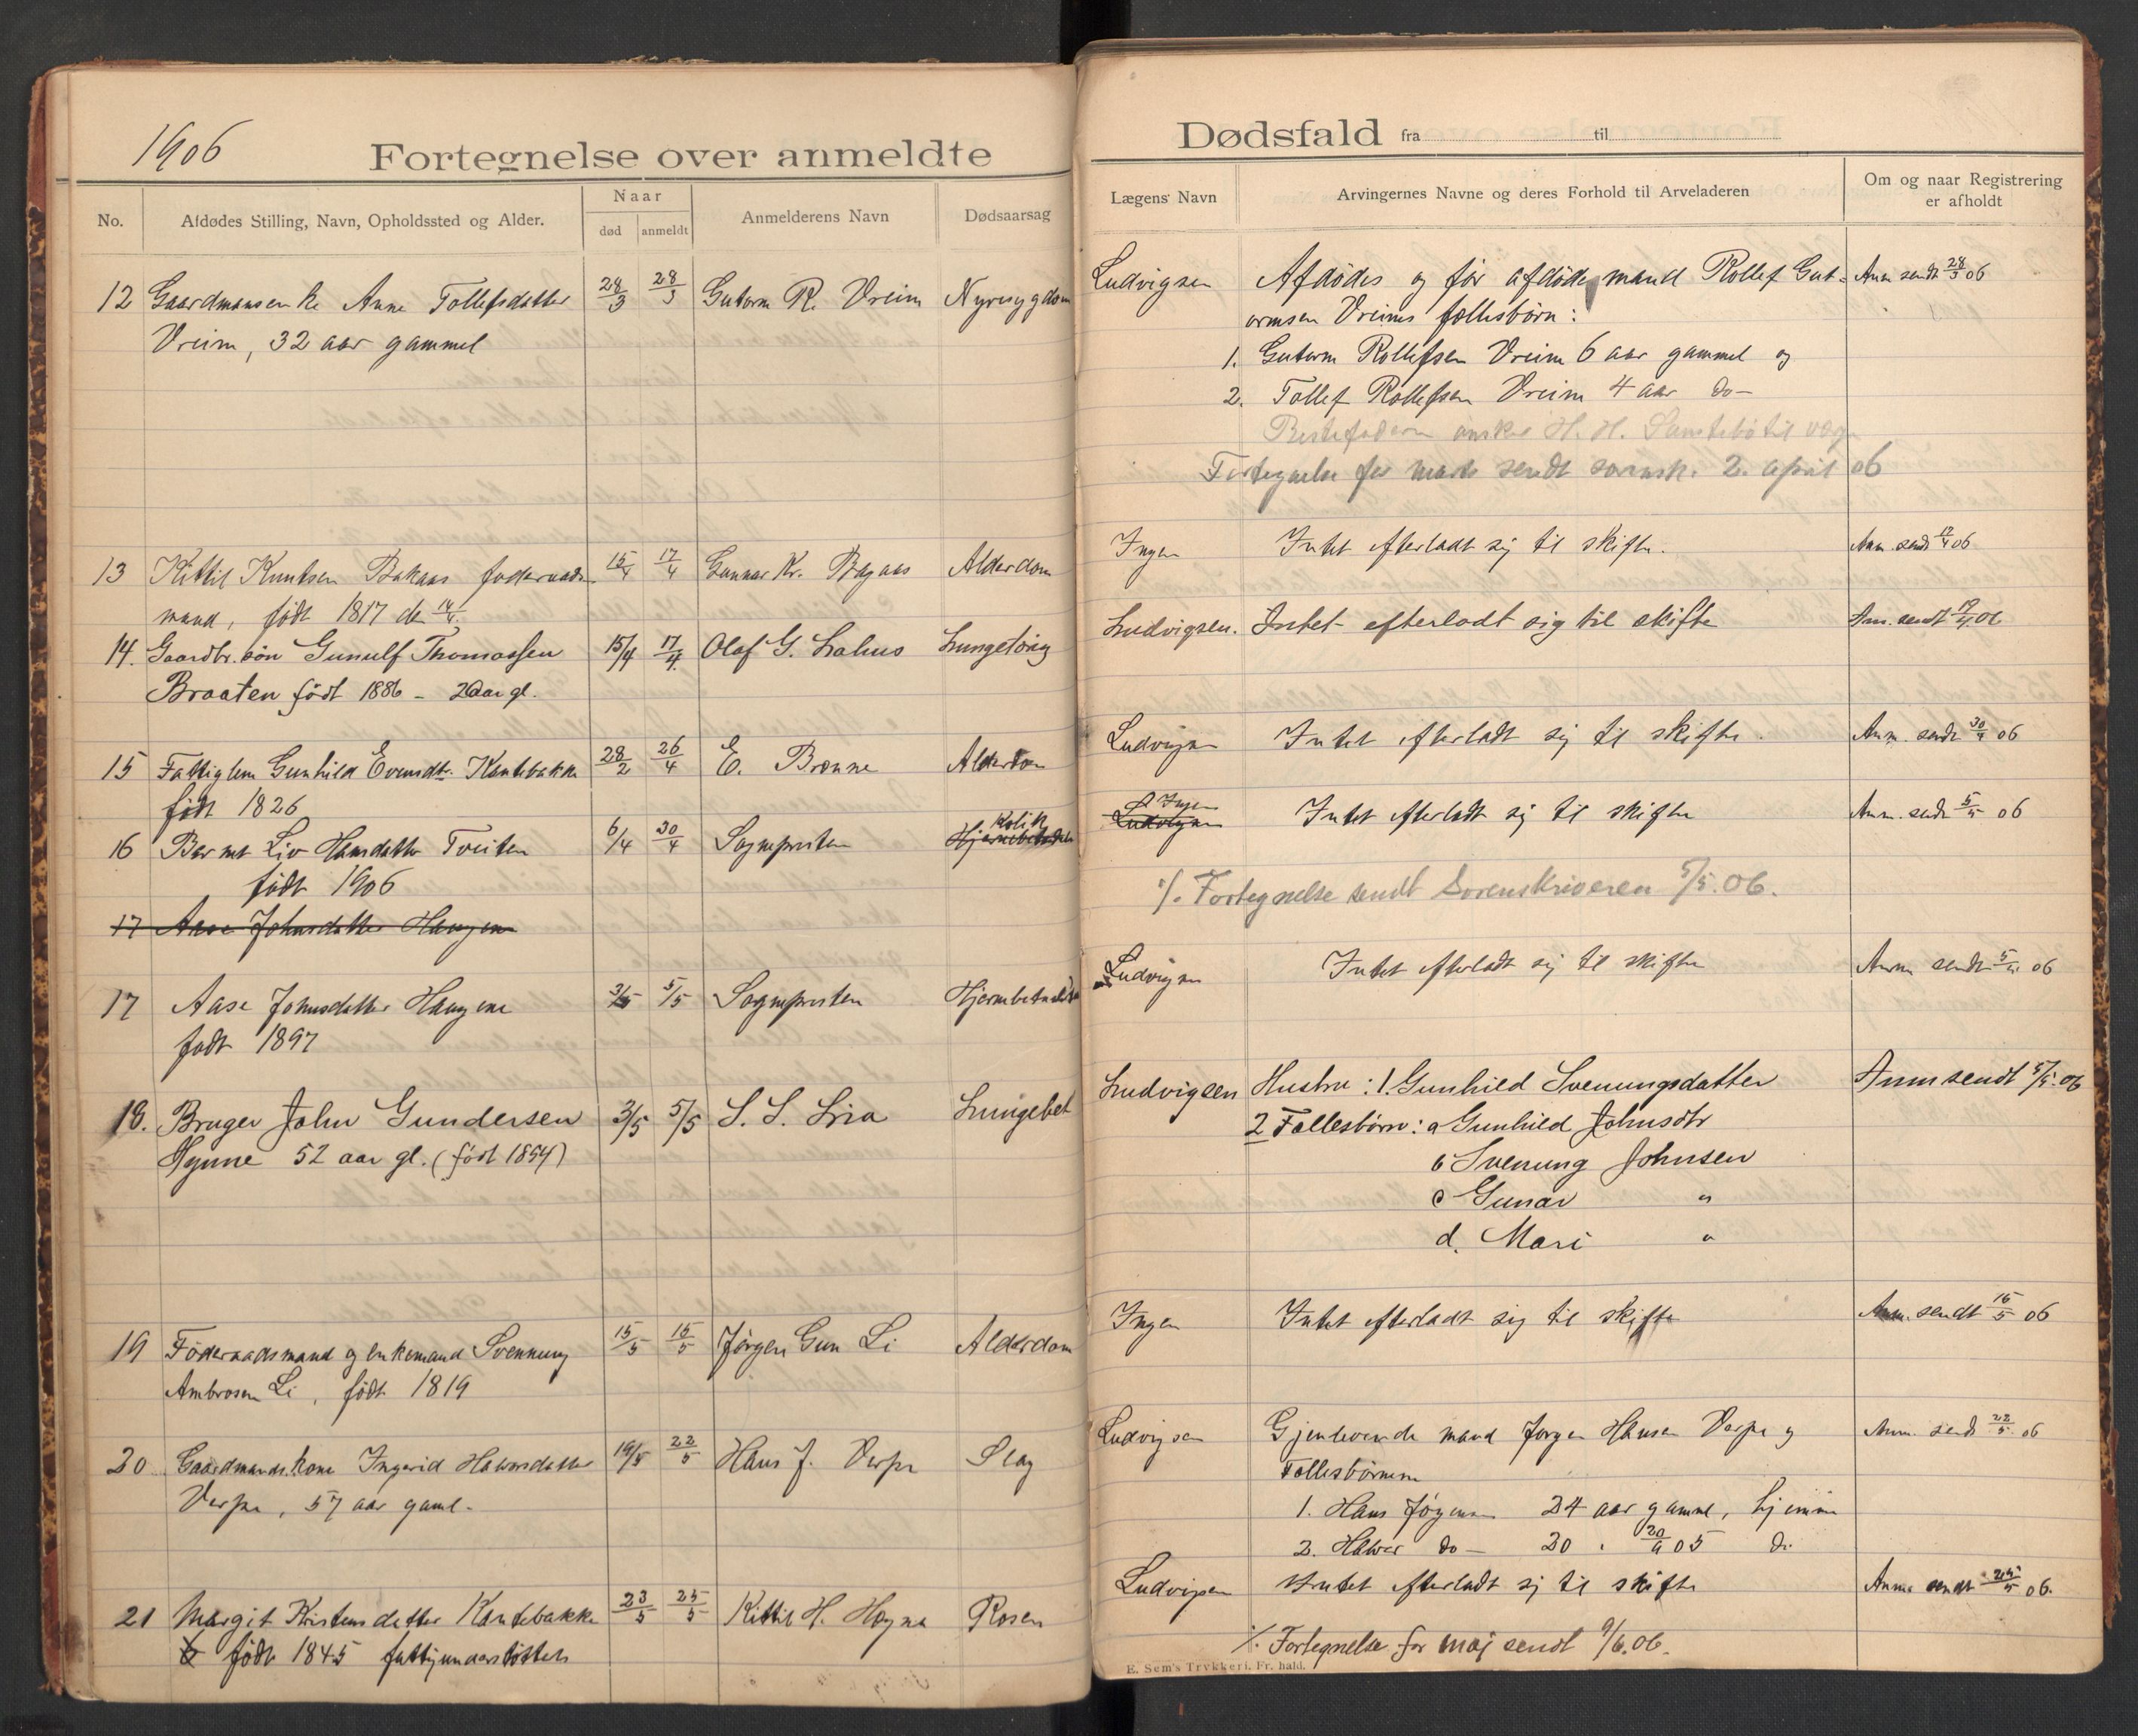 1906
Fortegnelse over anmeldte
No.
Afdødes Stilling, Navn, Opholdssted og Alder.
Naar
død
anmeldt
Anmelderens Navn
Dødsaarsag
12 Gaardmansenke Anne Tollefsdatter 28/3 28/3 Gutorm R. Vreim Nyresygdom
Vreim, 32 aar gammel
13 Kittil Knutsen Bakaas foderaads- 15/4 17/4 Gunnar Kr. Bagaas Alderdom
mand, født 1817 de 14/4
14. Gaardbr. søn Gunulf Thomassen 15/4 17/4 Olaf G. Lahus Lungetæring
Braaten født 1886 - 20 aar gl.
15 Fattiglem Gunhild Evensdtr. Kantebakke 28/2 26/4 E. Brønne Alderdom
født 1826
16 Barnet Liv Hansdatter Tveiten 6/4 30/4 Sognepresten Kolik Hjernebetændelse
født 1906
17 Aase Johnsdatter Haugene
17 Aase Johnsdatter Haugene 3/5 5/5 Sognepresten Hjernebetændelse
født 1897
18. Bruger John Gundersen 3/5 5/5 S. S. Lia Lungebet
Hynne 52 aar gl. (født 1854)
19 Føderaadsmand og enkemand Svennung 15/5 15/5 Jørgen Gun Li Alderdom
Ambrosen Li, født 1819
20 Gaardmandskone Ingerid Halvorsdatter 19/5 22/5 Hans J. Verpe Slag
Verpe, 57 aar gaml.
21 Margit Kristensdatter Kantebakke 23/5 25/5 Kittil H. Høgna Rosen
født 1845 fattigunderstøttet
Dødsfald fra til
Lægens Navn
Arvingernes Navne og deres Forhold til Arveladeren
Om og naar Registrering
er afholdt
Ludvigsen Afdødes og før afdøde mand Rollef Gut- Anm sendt 28/3 06
ormsen Vreims fellesbørn:
1. Gutorm Rollefsen Vreim 6 aar gammel og
2. Tollef Rollefsen Vreim 4 aar do-
Bestefaderen ønsker H. H. til værge
Fortegnelse for marts sendt sorensk. 2. april 06
Ingen Intet efterladt sig til skifte. Anm. sendt 17/4 06
Ludvigsen. Intet efterladt sig til skifte Anm. sendt 17/4 06
Ludvigsen Intet efterladt sig til skifte. Anm. sendt 30/4 06
Ingen
Ludvigsen Intet efterladt sig til skifte Anm. sendt 5/5 06
./. Fortegnelse sendt Sorenskriveren 5/5. 06.
Ludvigsen Intet efterladt sig til skifte Anm sendt 5/5 06
Ludvigsen Hustru: 1. Gunhild Svenungsdatter Anm sendt 5/5. 06
2 Fellesbørn: a Gunhild Johnsdtr
b Svenung Johnsen
c Gunar "
d. Mari "
Ingen Intet efterladt sig til skifte Anm. sendt 15/5 06
Ludvigsen Gjenlevende mand Jørgen Hansen Verpe og Anm. sendt 22/5. 06
Fellesbørnene
1. Hans Jørgensen 24 aar gammel, hjemme
2. Halvor do- 20 " 20/9 05 do
Ludvigsen Intet efterladt sig til skifte Anm. sendt 25/5 06.
./. Fortegnelse for maj sendt 9/6. 06.
E. Sem's Trykkeri, Fr. hald.